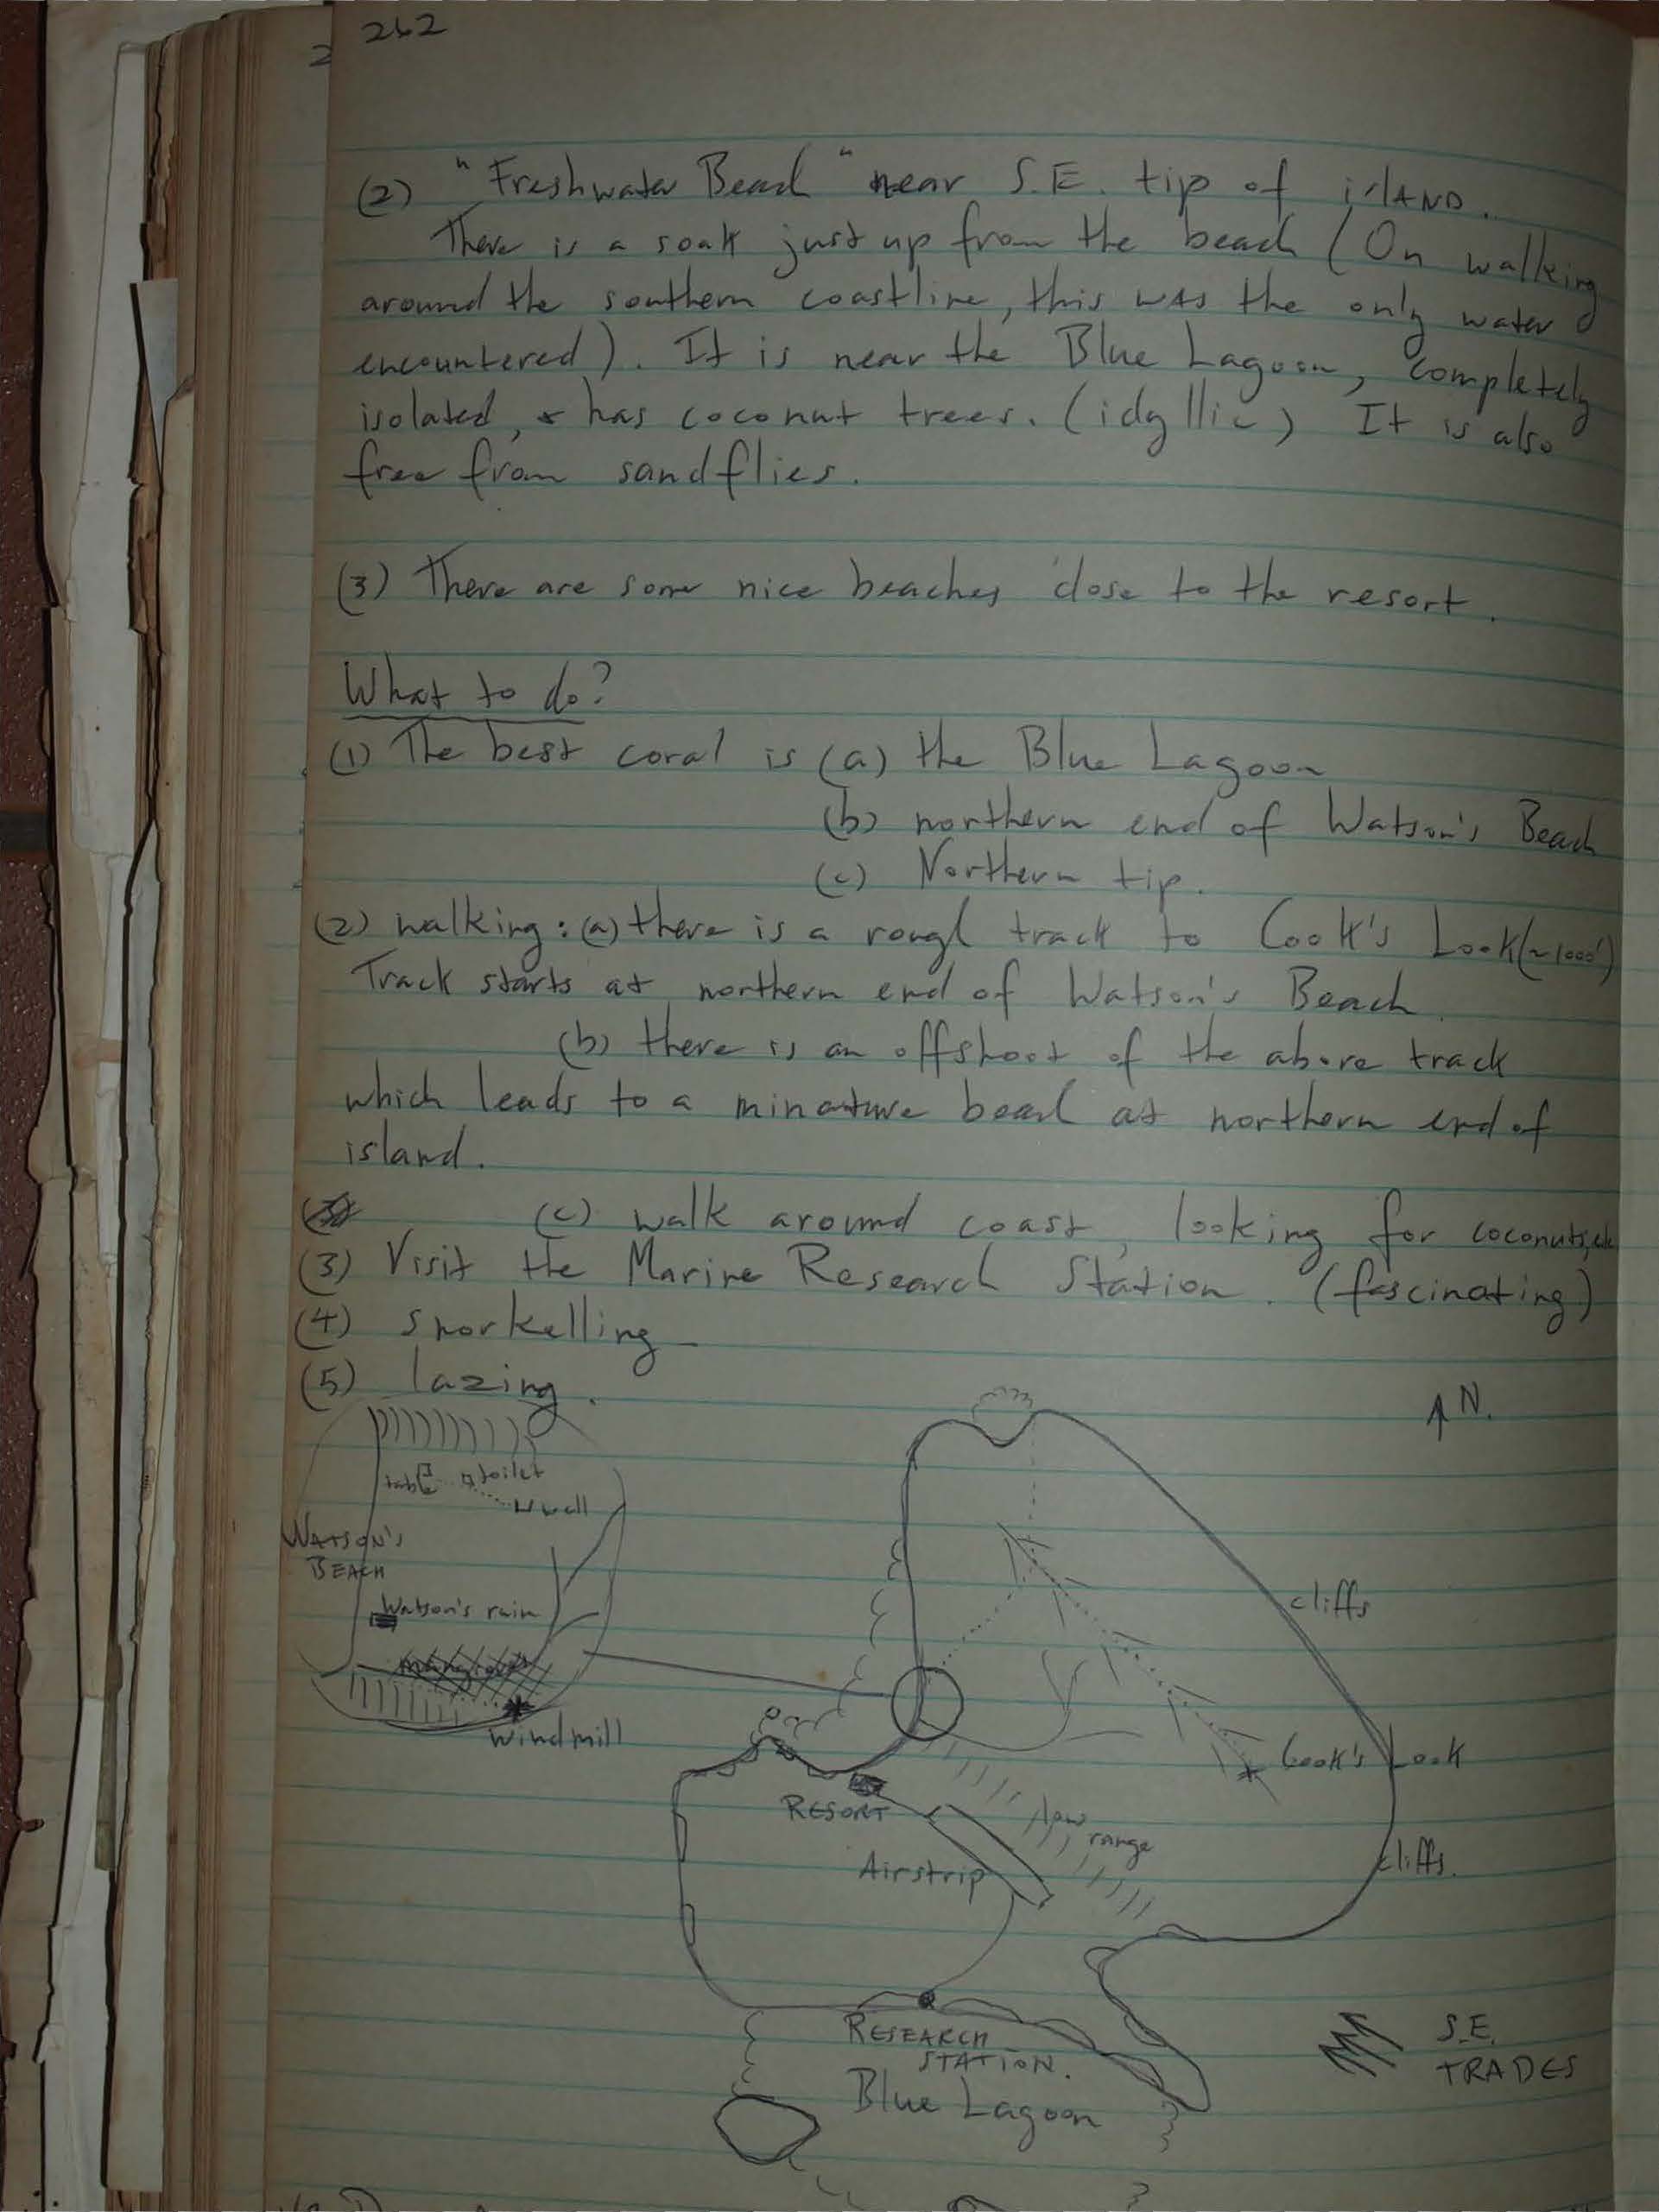 262
2
(2) "Freshwater Beach" near S.E. tip of islAND.
There is a soak just up from the beach (On walking
around the southern coastline, this wAs the only water
encountered). It is near the Blue Lagoon, completely
isolated, & has coconut trees. (idyllic) It is also
free from sandflies.
(3) There are some nice beaches close to the resort.
What to do?
(1) The best coral is (a) the Blue Lagoon
(b) northern end of Watson's Beach
(c) Northern tip.
(2) walking: (a) there is a rough track to Cook's Look (~1000')
Track starts at northern end of Watson's Beach.
(b) there is an offshoot of the above track
which leads to a minature beach at northern end of
island.
(c) walk around coast, looking for coconuts, etc
(3) Visit the Marine Research Station. (fascinating)
(4) snorkelling
(5) lazing.
N.
table toilet
well
WATSON'S
BEACH
Watson's ruin
mangroves
windmill
cliffs
Cook's Look
RESORT
low
range
Airstrip
cliffs.
RESEARCH
STATION.
Blue Lagoon
S.E.
TRADES